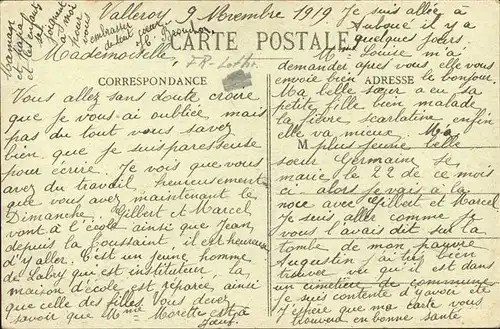 Valleroy 9 Novembre 1919
CARTE POSTALE
Mademoiselle,
CORRESPONDANCE
Vous allez sans doute croire
que je vous ai oubliée, mais
pas du tout vous savez
bien que je suis paresseuse
pour écrire. Je vois que vous
avez du travail, heureusement
que vous avez maintenant le
Dimanche. Gilbert et Marcel
vont à l'école ainsi que Jean
depuis la Toussaint il est heureux
d'y aller. C'est un jeune homme
de Labry qui est instituteur, la
maison d'école est réparée, ainsi
que celle des filles. Vous devez
savoir que Mme Morette est à
Jœuf.
Je suis allée à
Auboué il y a
quelques jours
Mme Louise m'a
demander après vous elle vous
envoie bien le bonjour.
ADRESSE
Ma belle sœur a eu sa
petite fille bien malade
la fièvre scarlatine, enfin
elle va mieux. Ma
M plus jeune belle
soeur Germaine se
marie le 22 de ce mois
ci alors je vais à la
noce avec Gilbert et Marcel
Je suis allée comme je
vous l'avais dit sur la
tombe de mon pauvre
Augustin j'ai très bien
trouver vu qu'il est dans
un cimetière de commune
je suis contente d'y avoir été
J'espère que ma carte vous
trouvera en bonne santé
Maman
Papa
et les
se
joignent
à moi
pour
vous
embrasser
de tout cœur